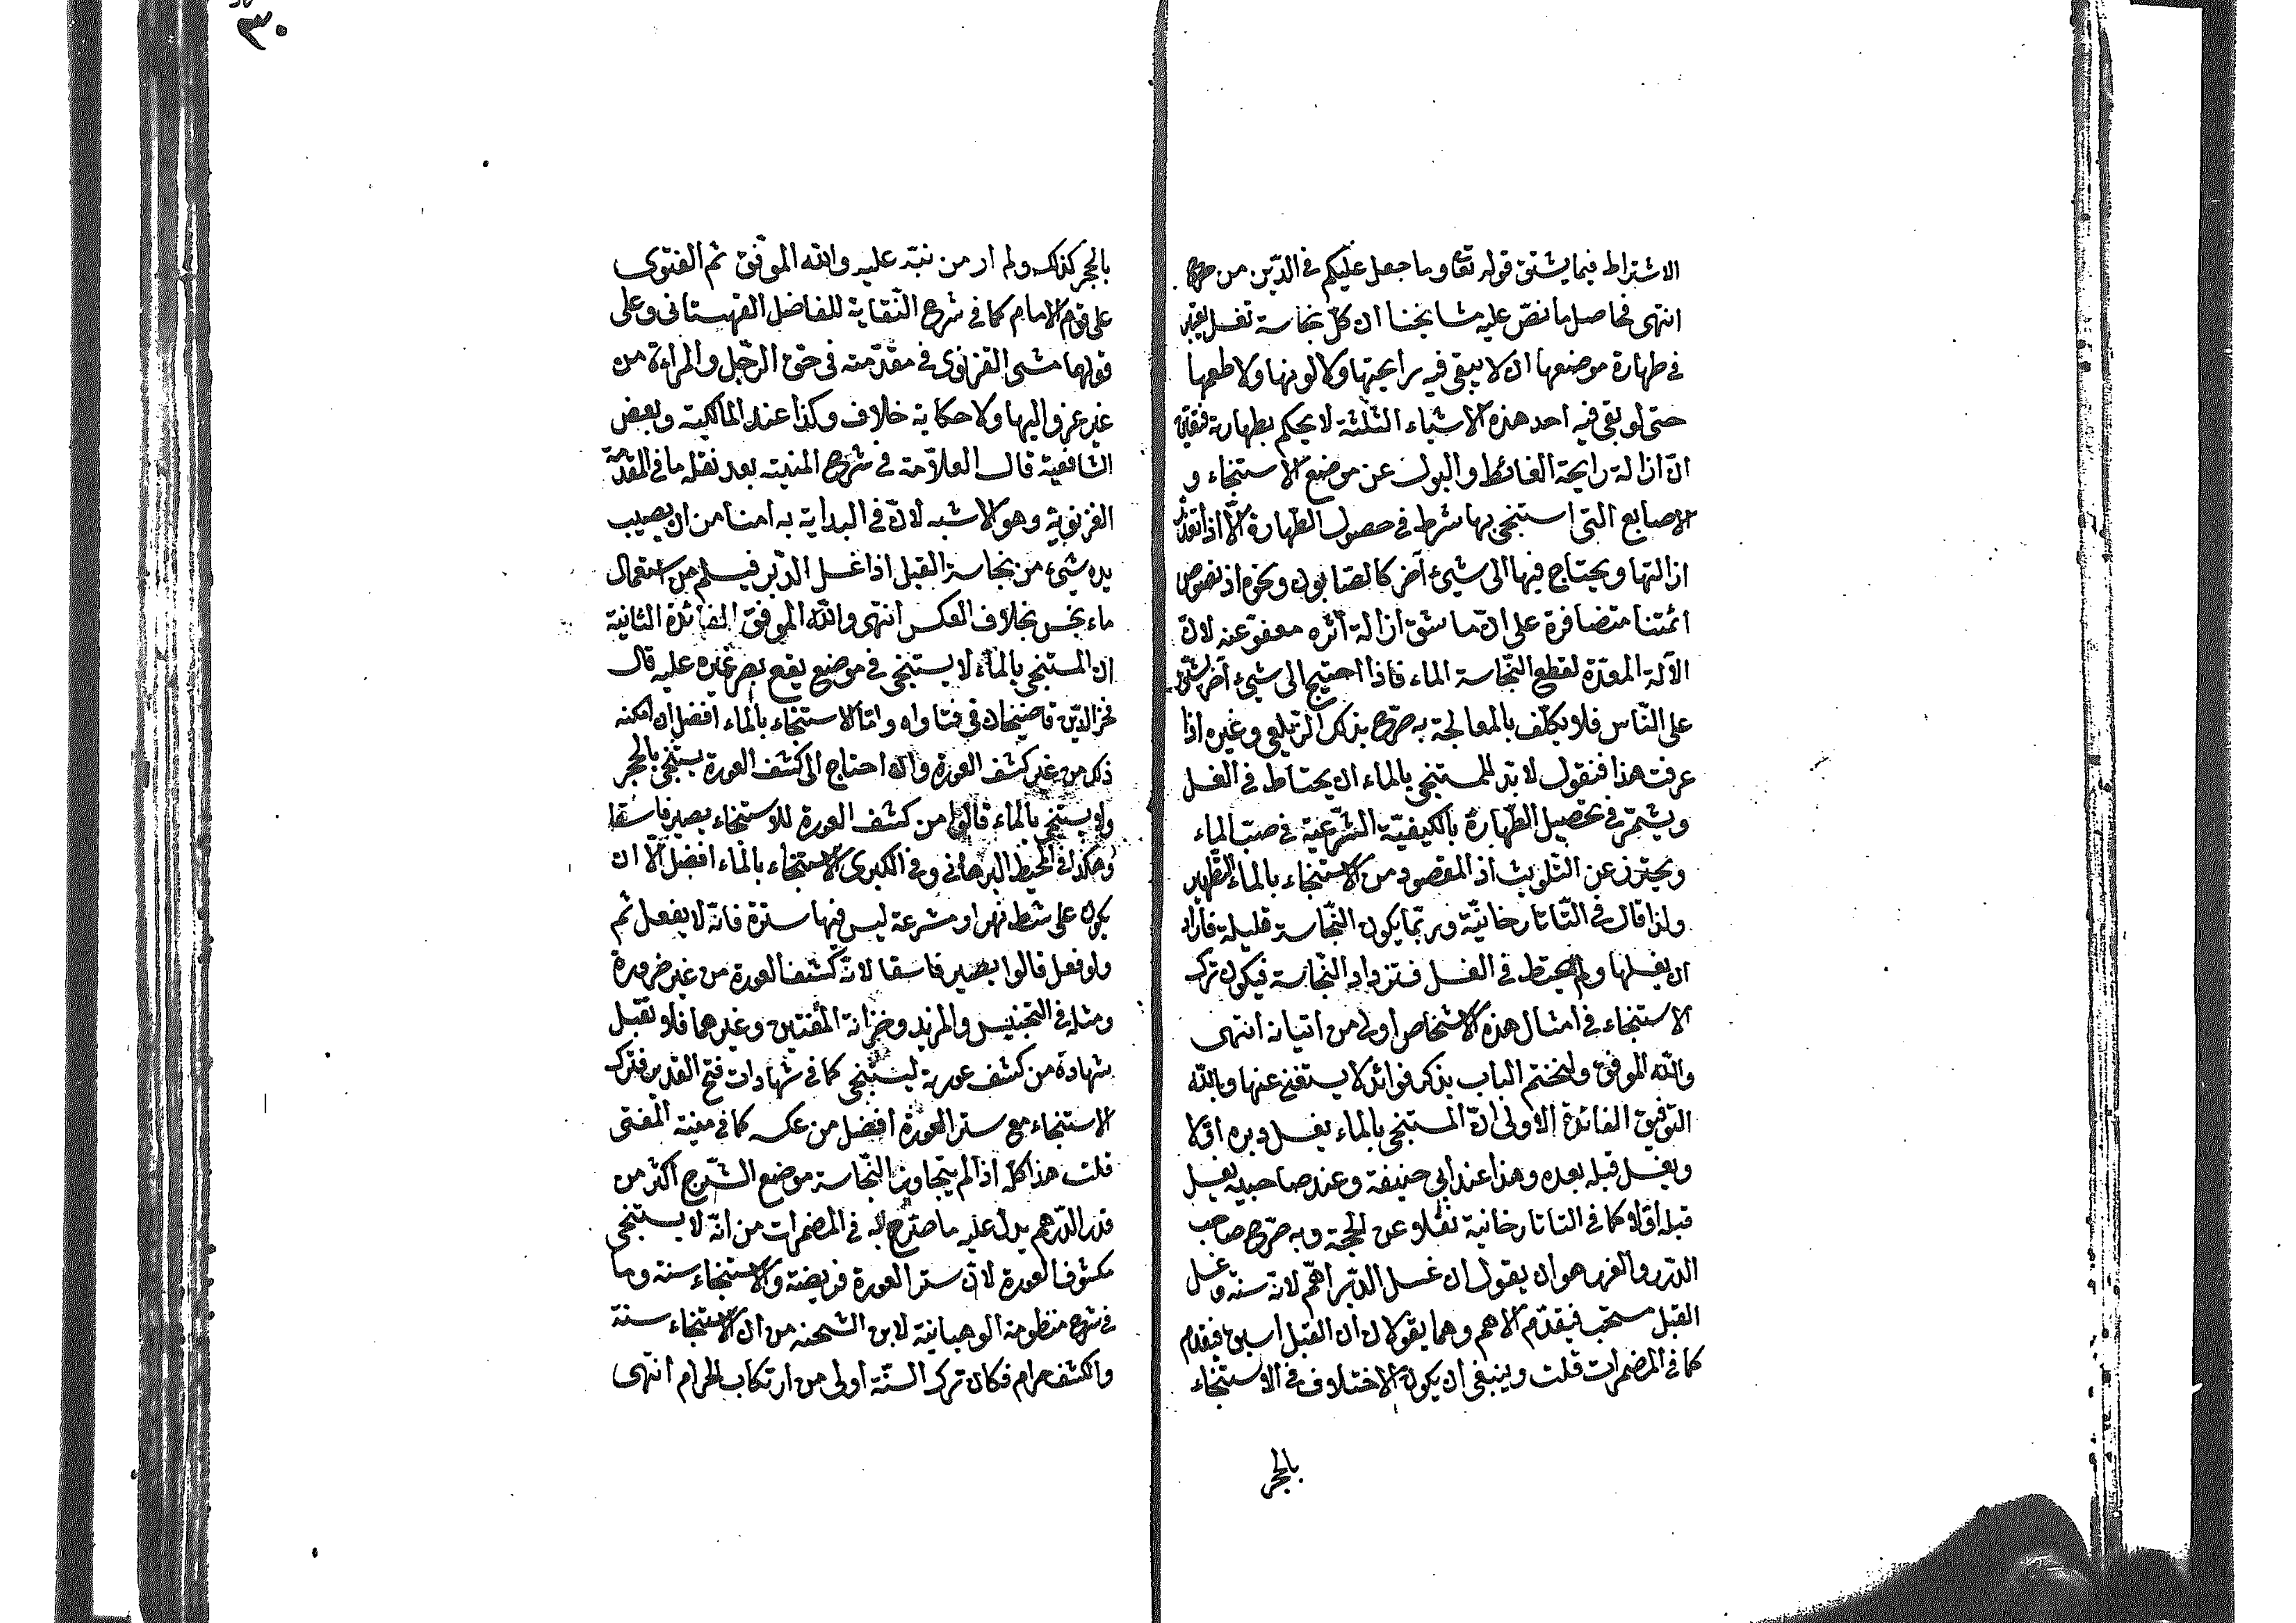 الاشتراط فيما يشق قوله تعا وما جعل عليكم في الدّين من حرج
انتهى فحاصل ما نصّ عليه مشايخنا ان كلّ نجاسة تغسل يعتبر
في طهارة موضعها ان لا يبقى فيه رايحتها ولا لونها ولا طعمها
حتى لو بقي فيه احد هذه الاشياء الثلثة لا يحكم بطهارته
انّ ازالة رايحة الغائط والبول عن موضع الاستنجاء و
الاصابع التي استنجي بها شرط في حصول الطّهارة الّا اذا تعذّر
ازالتها ويحتاج فيها الى شيئ آخر كالصّابون ونحوه اذ نصوص
ائمّتنا متضافرة على انّ ما شق ازالة أثره معفوّ عنه لانّ
الآلة المعدّة لقطع النّجاسة الماء فاذا احتيج الى شيئ آخر يشقّ
على النّاس فلا يكلّف بالمعالجة به صرّح بذلك الزّيلعي وغيره اذا
عرفت هذا فنقول لا بدّ للمستنجي بالماء ان يحتاط في الغسل
ويشمّر في تحصيل الطّهارة بالكيفيّة الشّرعيّة في صبّ الماء
ويحترز عن التّلويث اذ المقصود من الاستنجاء بالماء التّطهير
ولذا قال في التّاتارخانيّة وربّما يكون النّجاسة قليلة فأراد
ان يغسلها ولم يحتط في الغسل فتزداد النّجاسة فيكون ترك
الاستنجاء في امثال هذه الاشخاص اولى من اتيانه انتهى
والله الموفق ولنختم الباب بذكر فوائد لا يستغنى عنها وبالله
التوفيق الفائدة الاولى انّ المستنجي بالماء يغسل دبره اوّلا
ويغسل قبله بعده وهذا عند ابي حنيفة وعند صاحبيه يغسل
قبله اوّلا كما في التاتارخانية نقلا عن الحجّة وبه صرّح صاحب
الدّرر والغرر هو ان يقول ان غسل الدّبر اهمّ لانّه سنّة وغسل
القبل مستحب فيقدّم الاهم وهما يقولان ان القبل اسبق فيقدم
كما في المضمرات قلت وينبغي ان يكون الاختلاف في الاستنجاء
بالحجر
٣٠
بالحجر كذلك ولم ار من نبّه عليه والله الموفّق ثم الفتوى
على قول الامام كما في شرح النّقاية للفاضل القهستاني وعلى
قولهما مشى الغزنوي في مقدّمته في حق الرّجل والمراءة من
غير عزو اليها ولا حكاية خلاف وكذا عند المالكيّة وبعض
الشافعية قال العلّامة في شرح المنية بعد نقله ما في المقدّمة
الغزنوية وهو الاشبه لانّ في البداية به امنا من ان يصيب
يده شيئ من نجاسة القبل اذا غسل الدّبر فيسلم من استعمال
ماء نجس بخلاف العكس انتهى والله الموفق الفائدة الثانية
ان المستنجي بالماء لا يستنجي في موضع يقع بصر غيره عليه قال
فخر الدّين قاضيخان في فتاواه وامّا الاستنجاء بالماء افضل ان امكنه
ذلك من غير كشف العورة وان احتاج الى كشف العورة يستنجي بالحجر
ولا يستنجي بالماء قالوا من كشف العورة للاستنجاء يصير فاسقا
وهكذا في المحيط البرهاني وفي الكبرى الاستنجاء بالماء افضل الّا ان
يكون على شط نهر او مشرعة ليس فيها سترة فانّه لا يفعل ثم
ولو فعل قالوا يصير فاسقا لانّه كشف العورة من غير ضرورة
ومثله في التجنيس والمزيد وخزانة المفتين وغيرهما فلا تقبل
شهادة من كشف عورته ليستنجي كما في شهادات فتح القدير فترك
الاستنجاء مع ستر العورة افضل من عكسه كما في منية المفتي
قلت هذا كلّه اذا لم يتجاوز النّجاسة موضع الشّرج اكثر من
قدر الدّرهم يدل عليه ما صرّح به في المضمرات من انّه لا يستنجي
مكشوف العورة لانّ ستر العورة فريضة والاستنجاء سنة وما
في شرح منظومة الوهبانية لابن الشحنه من ان الاستنجاء سنّة
والكشف حرام فكان ترك السنّة اولى من ارتكاب الحرام انتهى